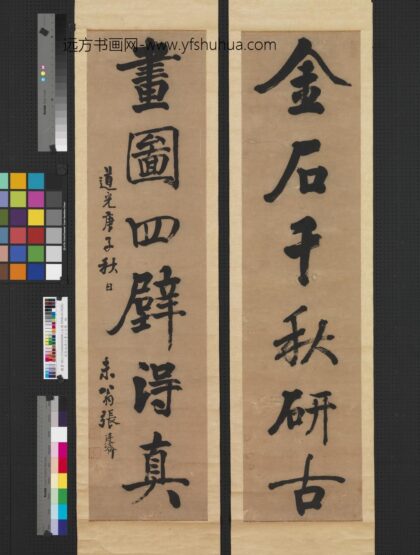 远方书画网-www.yfshuhua.com
金石千秋研古
畫圖四壁得真
道光庚子秋日
未翁張廷濟